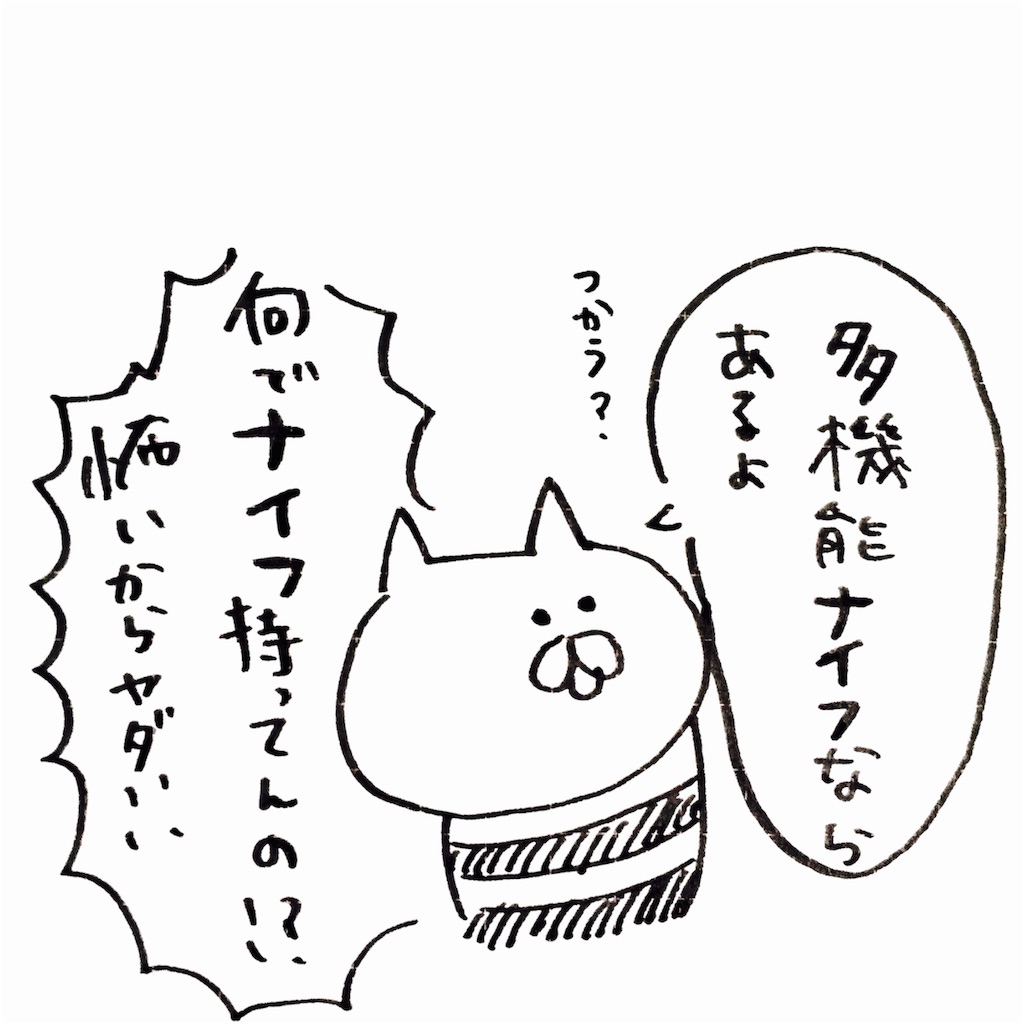 多機能ナイフなら
あるよ
つかう？
何でナイフ持ってんの!?
怖いからヤダいい